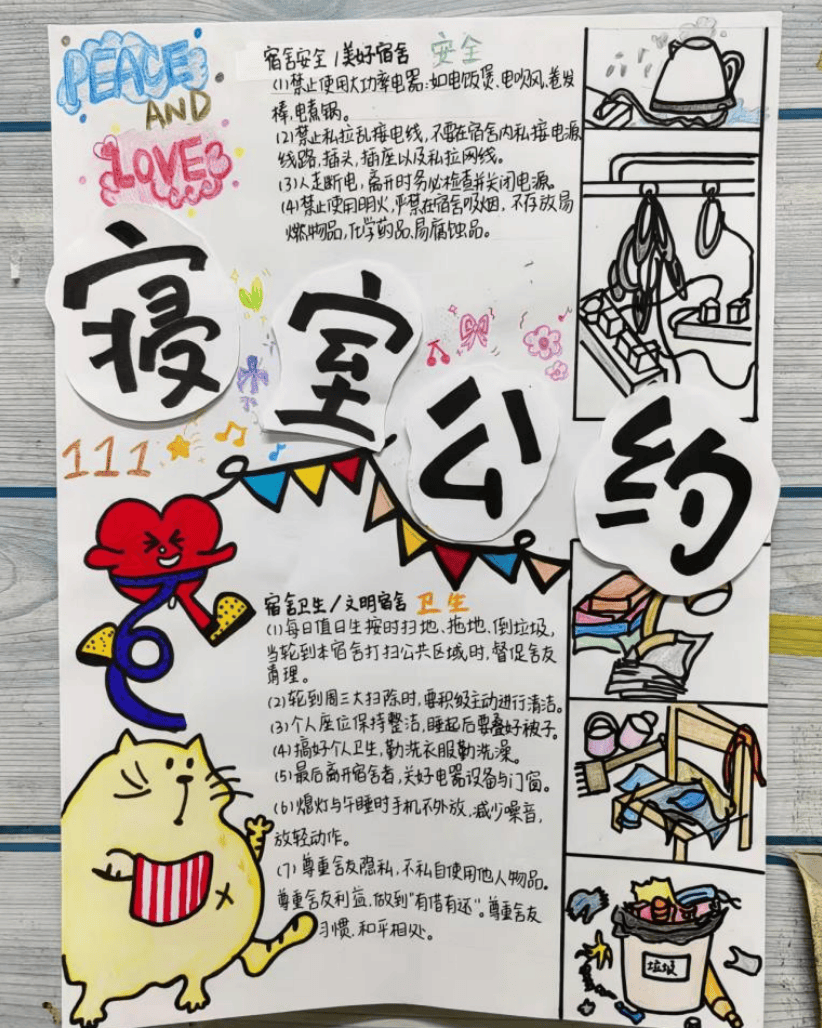 PEACE
AND
LOVE
宿舍安全/美好宿舍 安全
(1)禁止使用大功率电器:如电饭煲、电吹风、卷发
棒,电煮锅。
(2)禁止私拉乱接电线,不要在宿舍内私接电源
线路,插头,插座以及私拉网线。
(3)人走断电,离开时务必检查并关闭电源。
(4)禁止使用明火,严禁在宿舍吸烟,不存放易
燃物品,化学药品、易腐蚀品。
寝室公约
111
宿舍卫生/文明宿舍 卫生
(1)每日值日生按时扫地、拖地、倒垃圾,
当轮到本宿舍打扫公共区域时,督促舍友
清理。
(2)轮到周三大扫除时,要积极主动进行清洁。
(3)个人座位保持整洁,睡起后要叠好被子。
(4)搞好个人卫生,勤洗衣服勤洗澡。
(5)最后离开宿舍者,关好电器设备与门窗。
(6)熄灯与午睡时手机不外放,减少噪音,
放轻动作。
(7)尊重舍友隐私,不私自使用他人物品。
尊重舍友利益,做到“有借有还”。尊重舍友
习惯,和平相处。
垃圾